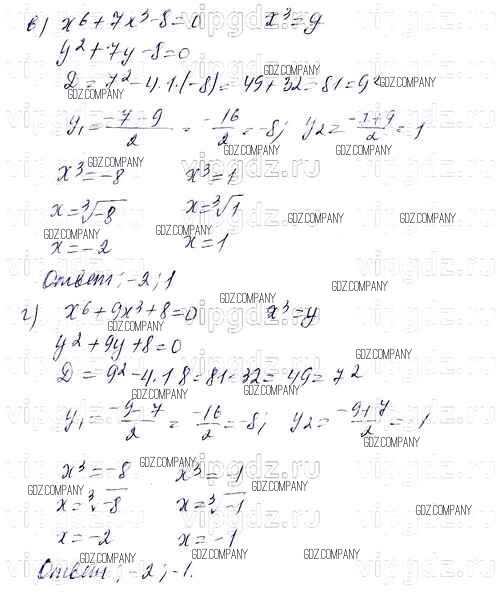 в) x⁶+7x³-8=0 x³=y
y²+7y-8=0
D=7²-4.1.(-8)=49+32=81=9²
y₁=(-7-9)/2=-16/2=-8; y₂=(-7+9)/2=1
x³=-8 x³=1
x=³√-8 x=³√1
x=-2 x=1
Ответ: -2; 1
г) x⁶+9x³+8=0 x³=y
y²+9y+8=0
D=9²-4.1.8=81-32=49=7²
y₁=(-9-7)/2=-16/2=-8; y₂=(-9+7)/2=-1
x³=-8 x³=-1
x=³√-8 x=³√-1
x=-2 x=-1
Ответ: -2; -1.
vipgdz.ru
GDZ.COMPANY